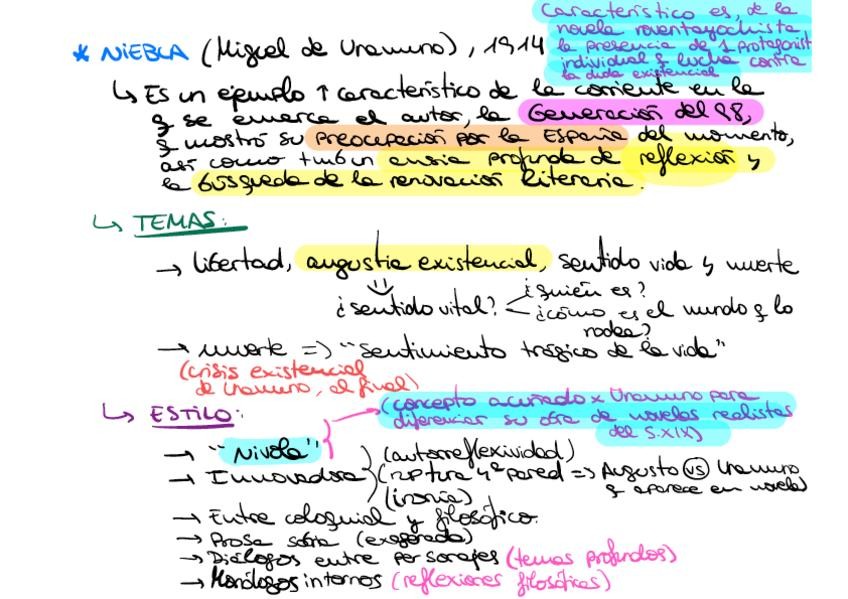 Característico es, de la
novela noventayochista
la presencia de 1 protagonist
individual q lucha contra
la duda existencial
* NIEBLA (Miguel de Unamuno), 1914
↳ Es un ejemplo ↑ característico de la corriente en la
q se emarca el autor, la Generación del 98,
q mostró su preocupación por la España del momento,
así como tmb un ansia profunda de reflexión y
la búsqueda de la renovación literaria.
↳ TEMAS:
→ libertad, angustia existencial, sentido vida y muerte
¿sentido vital? < ¿quién es?
¿cómo es el mundo q lo
rodea?
→ muerte => "Sentimiento trágico de la vida"
(crisis existencial
de Unamuno, al final)
↳ ESTILO:
(concepto acuñado x Unamuno para
diferenciar su obra de novelas realistas
del S.XIX)
→ "Nivola" (autorreflexividad)
→ Innovadora (ruptura 4ª pared => Augusto vs Unamuno
q aparece en novela)
(ironía)
→ Entre coloquial y filosófico.
→ Prosa sobria (exagerada)
→ Diálogos entre personajes (temas profundos)
→ Monólogos internos (reflexiones filosóficas)